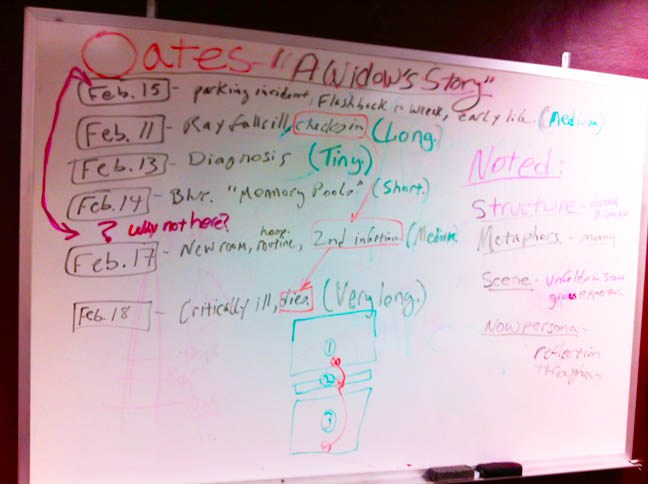 Oates - "A Widow's Story"
Feb. 15 - parking incident. Flashback - wreck, early life (Medium)
Feb. 11 - Ray falls ill, checks in (Long.)
Feb. 13 - Diagnosis (Tiny.)
Feb. 14 - Blur. "Memory Pools." (Short.)
? Why not here?
Feb. 17 - New room, hosp. routine, 2nd infection (Medium
Feb. 18 - Critically ill, dies. (Very long.)
1
2
3
Noted:
Structure -
Metaphors - many
Scene - Unfolds in scene
gives experience
Now persona -
reflection
throughout